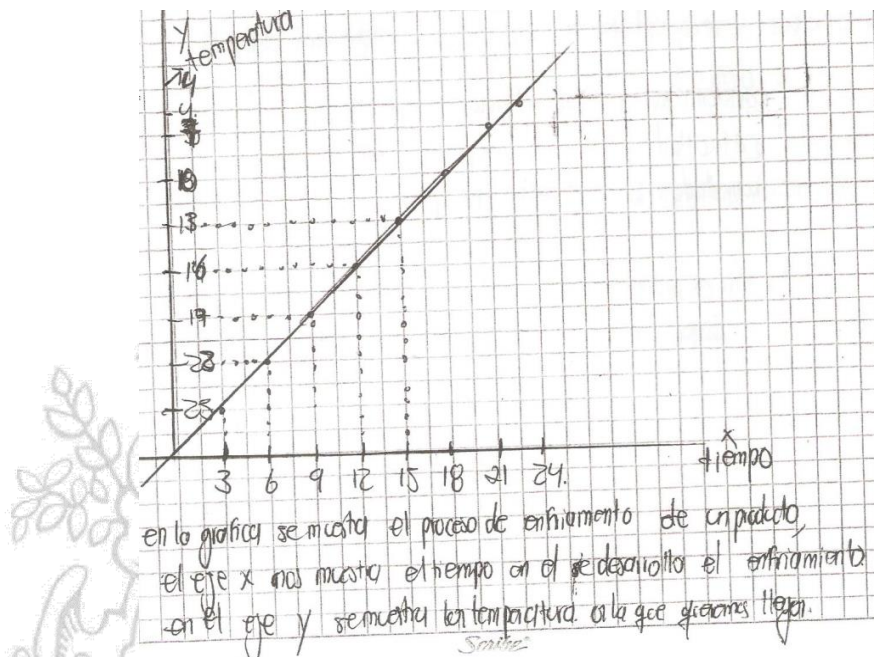 y
temperatura
4
10
13
16
19
23
25
3 6 9 12 15 18 21 24.
x
tiempo
en la grafica se muestra el proceso de enfriamento de un producto,
el eje x nos muestra el tiempo en el se desarrolla el enfriamiento
en el eje y se muestra la temperatura a la que queremos llegar.
Scribe